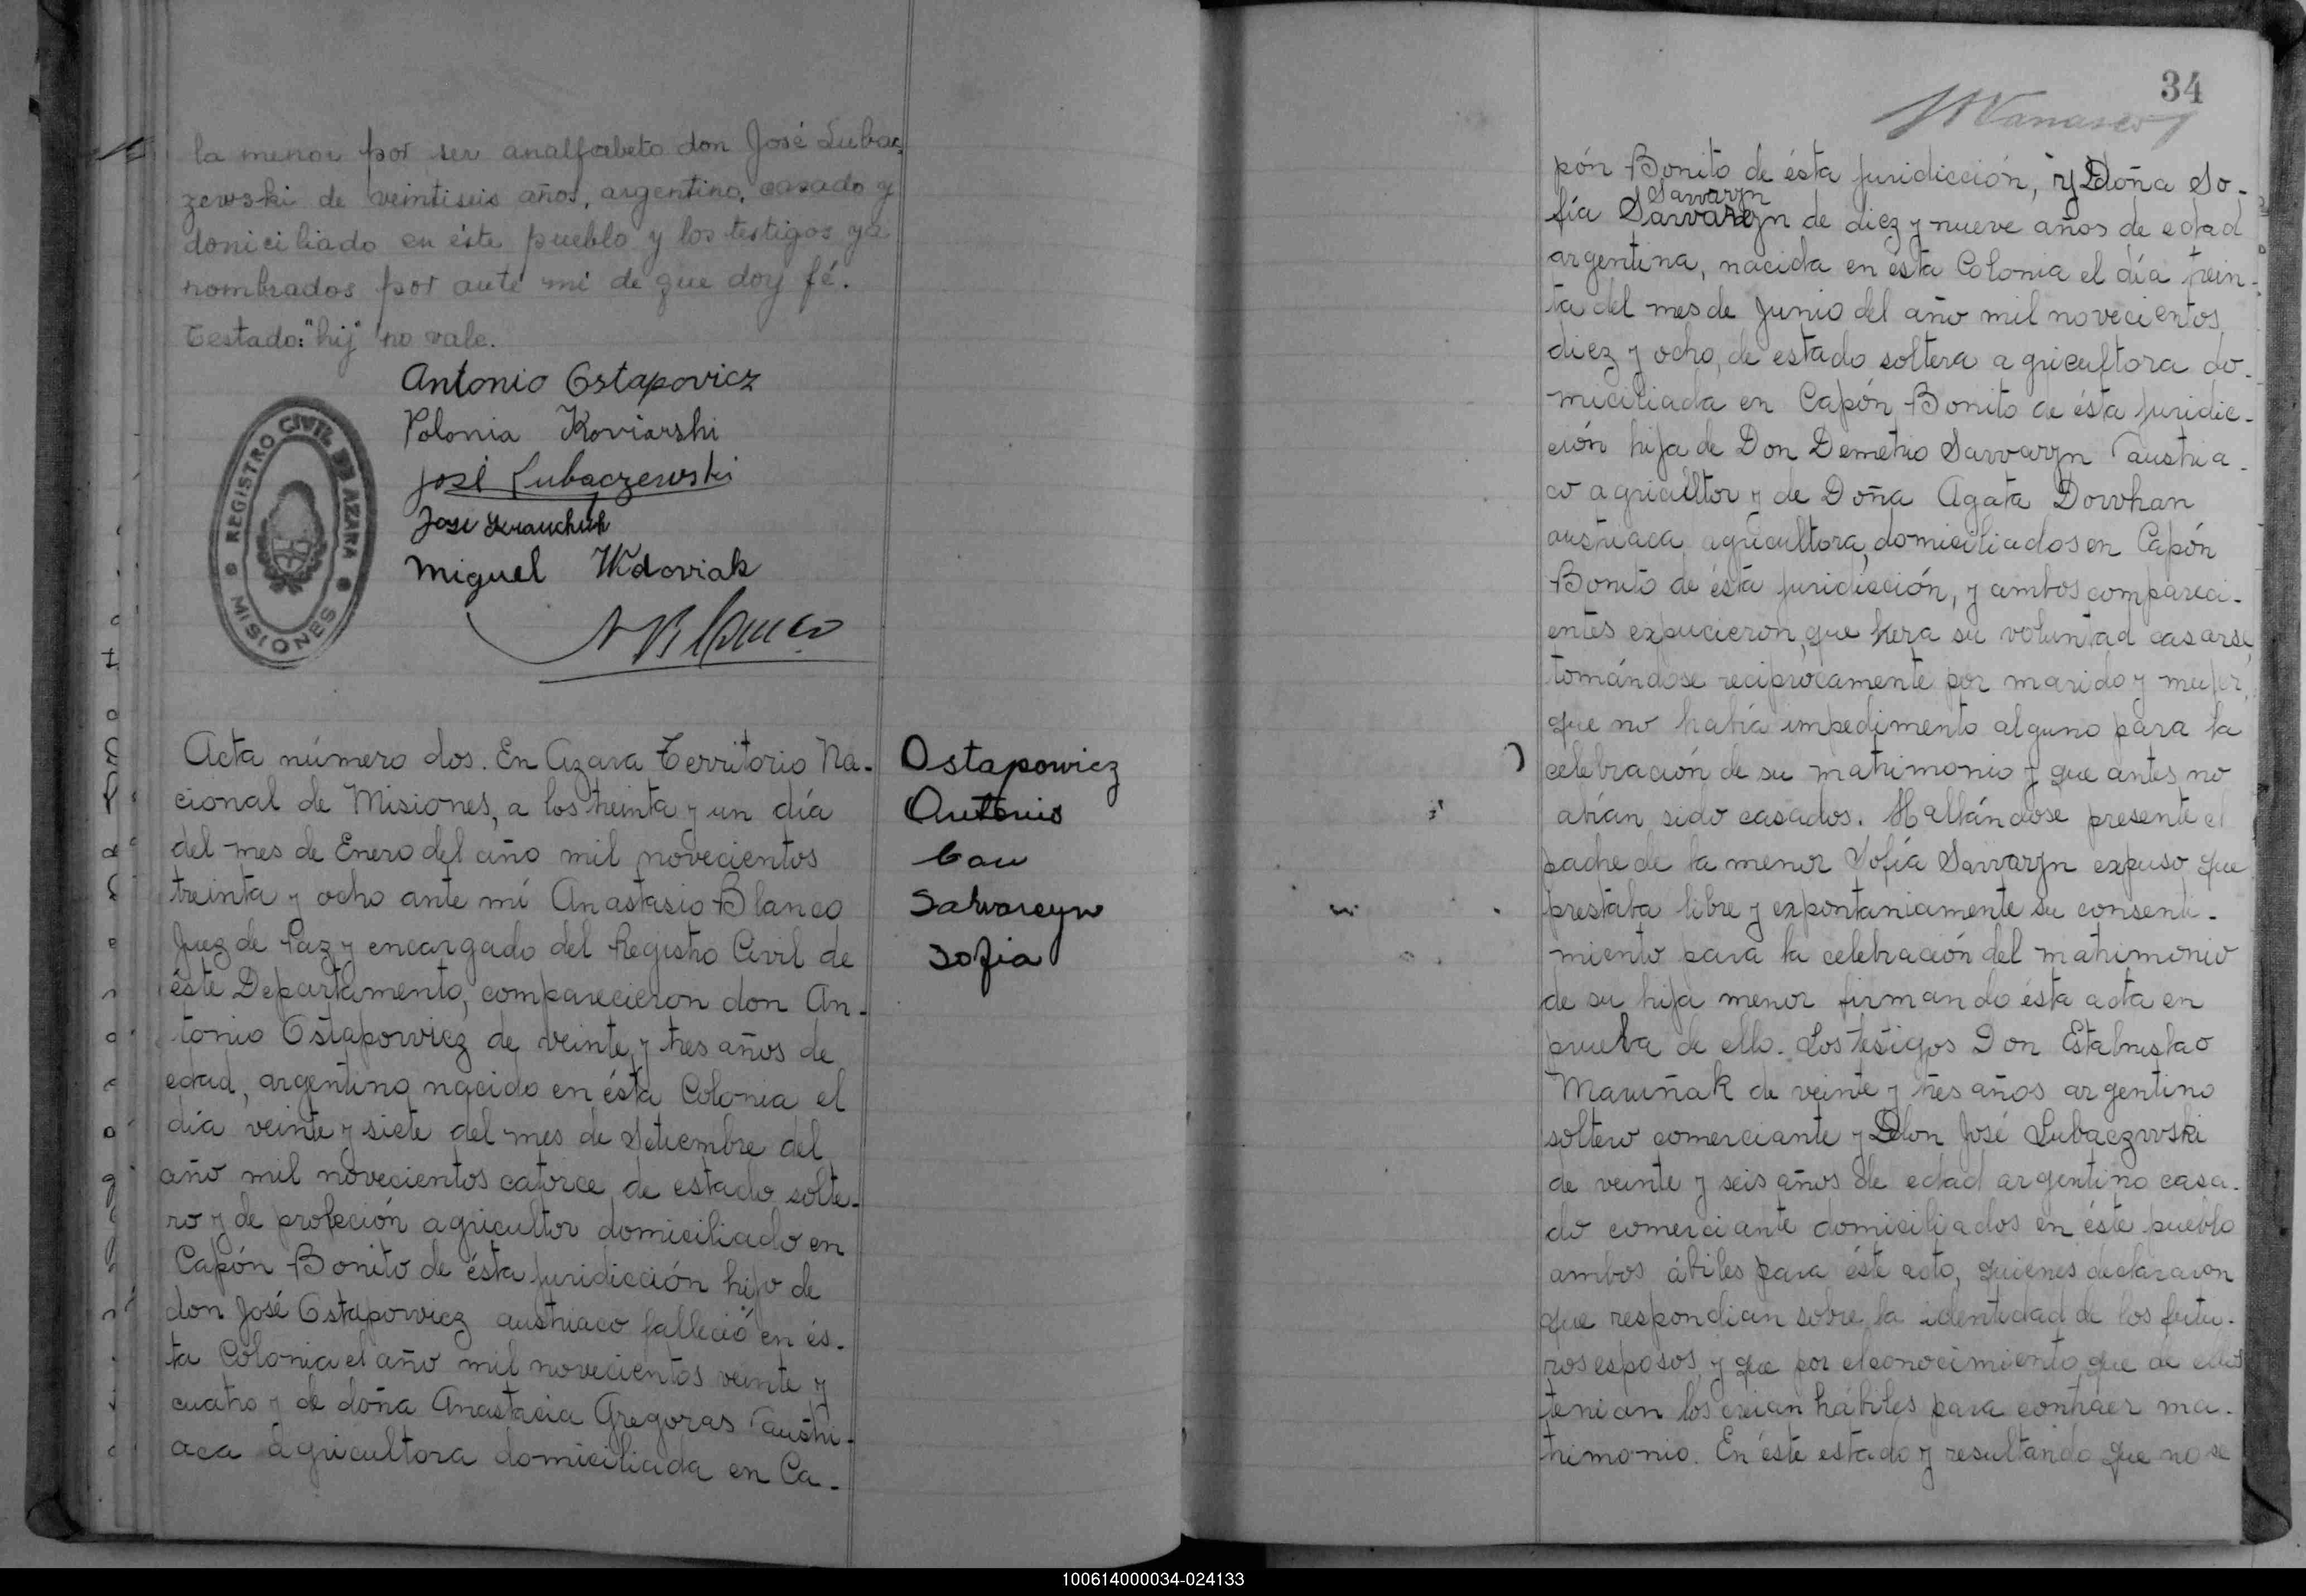 la menor por ser analfabeto don José Lubac
zewski de veintiseis años, argentino, casado y
doniciliado en éste pueblo y los testigos ya
nombrados por ante mi de que doy fé.
Testado: "hij" no vale.
Antonio Ostapovicz
Polonia Koviarski
José Lubaczewski
Miguel Wdoviak
REGISTRO CIVIL DE AZARA
MISIONES
Acta número dos. En Azara Territorio Na-
cional de Misiones, a los treinta y un día
del mes de Enero del año mil novecientos
treinta y ocho ante mí Anastasio Blanco
Juez de Paz y encargado del Registro Civil de
éste Departamento, comparecieron don An-
tonio Ostapowicz de veinte y tres años de
edad, argentino nacido en ésta Colonia el
día veinte y siete del mes de Setiembre del
año mil novecientos catorce de estado solte-
ro y de profeción agricultor domiciliado en
Capón Bonito de ésta juridicción hijo de
don José Ostapowicz austriaco falleció en és-
ta Colonia el año mil novecientos veinte y
cuatro y de doña Anastacia Gregoras austri-
aca agricultora domiciliada en Ca-
Ostapowicz
Antonio
Con
Sawareyn
Sofia
34
pón Bonito de ésta juridicción, y Doña So-
Sawarzn
fía Sawarzn de diez y nueve años de edad
argentina, nacida en ésta Colonia el día trein-
ta del mes de Junio del año mil novecientos
diez y ocho, de estado soltera agricultora do-
miciliada en Capón Bonito de ésta juridic-
ción hija de Don Demetrio Sawarzn austria-
co agricultor y de Doña Agata Dowhan
austriaca agricultora, domiciliados en Capón
Bonito de ésta juridicción, y ambos compareci-
entes expucieron, que hera su voluntad casarse,
tomándose recíprocamente por marido y mujer,
que no había impedimento alguno para la
celebración de su matrimonio y que antes no
abían sido casados. Hallándose presente el
padre de la menor Sofía Sawarzn expuso que
prestaba libre y expontaniamente su consenti-
miento para la celebración del matrimonio
de su hija menor firmando ésta acta en
prueba de ello. Los tesigos Don Estabnislao
Maruñak de veinte y tres años argentino
soltero comerciante y Don José Lubaczwski
de veinte y seis años de edad argentino casa-
do comerciante domiciliados en éste pueblo
ambos ábiles para éste acto, quienes declararon
que respondian sobre la identidad de los futu-
ros esposos, y que por el conocimiento que de ellos
tenian los creian hábiles para contraer ma-
trimonio. En éste estado y resultando que no se
100614000034-024133